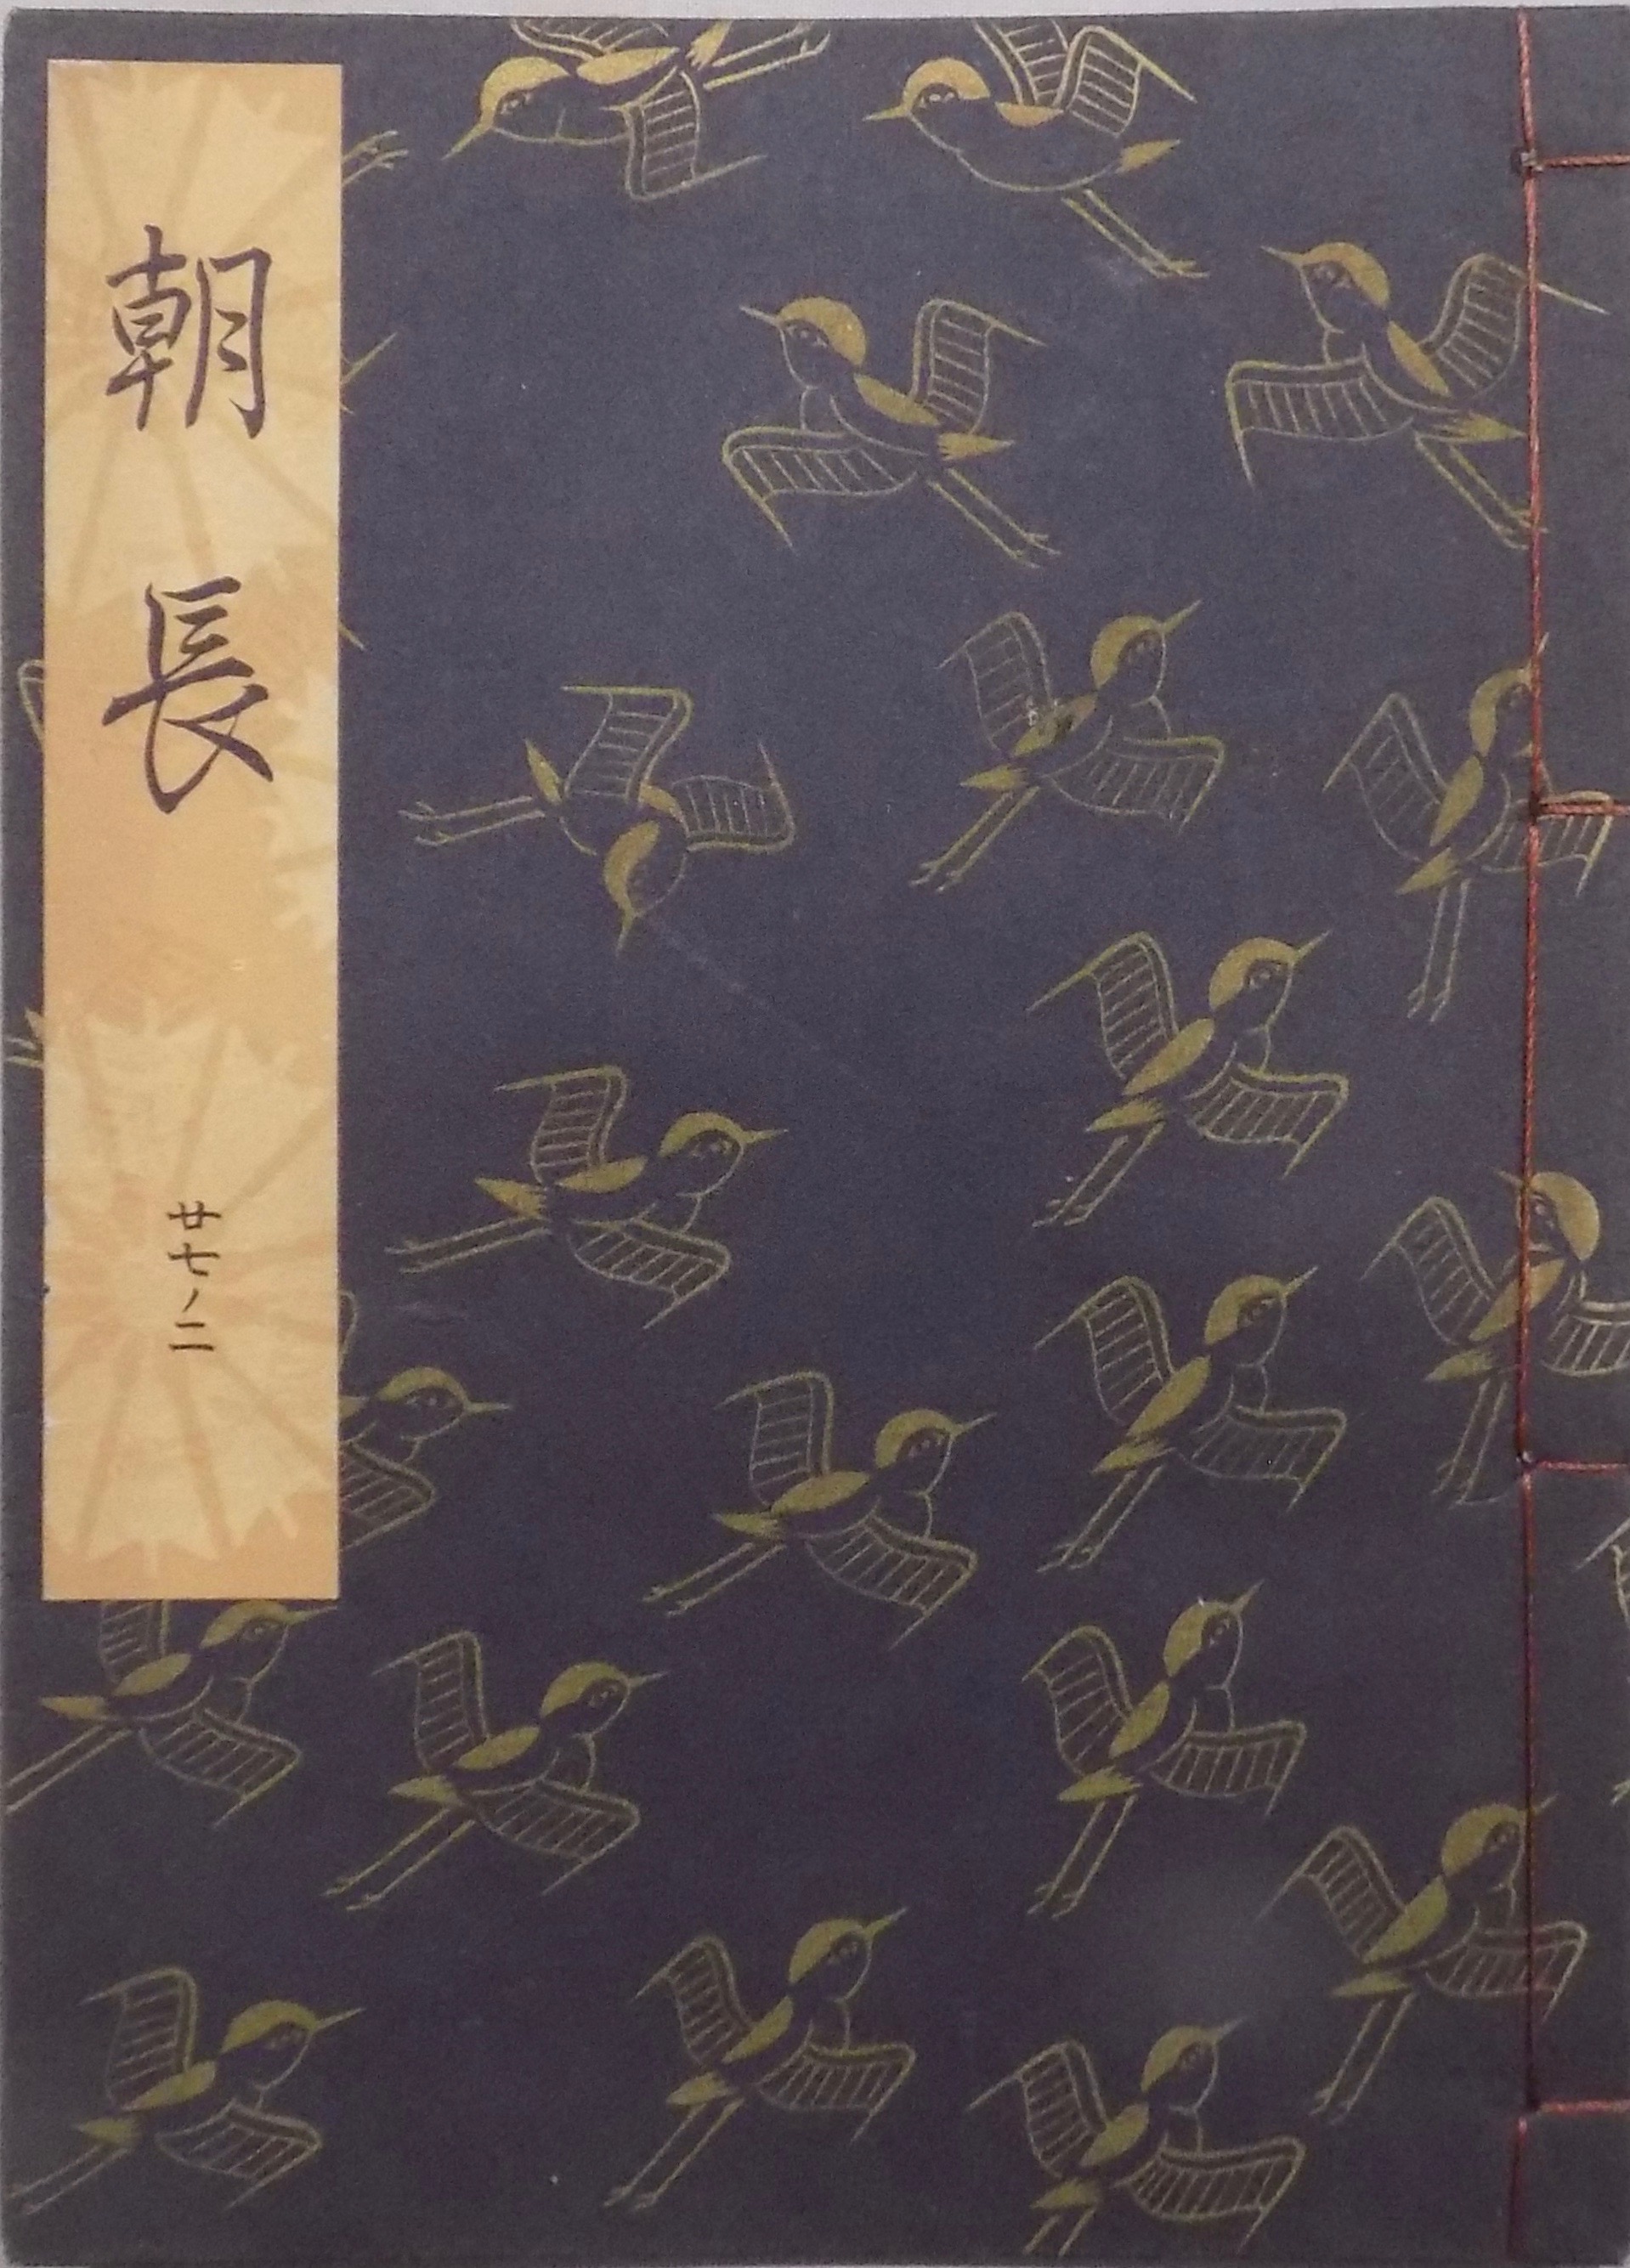 朝長
廿七ノ二